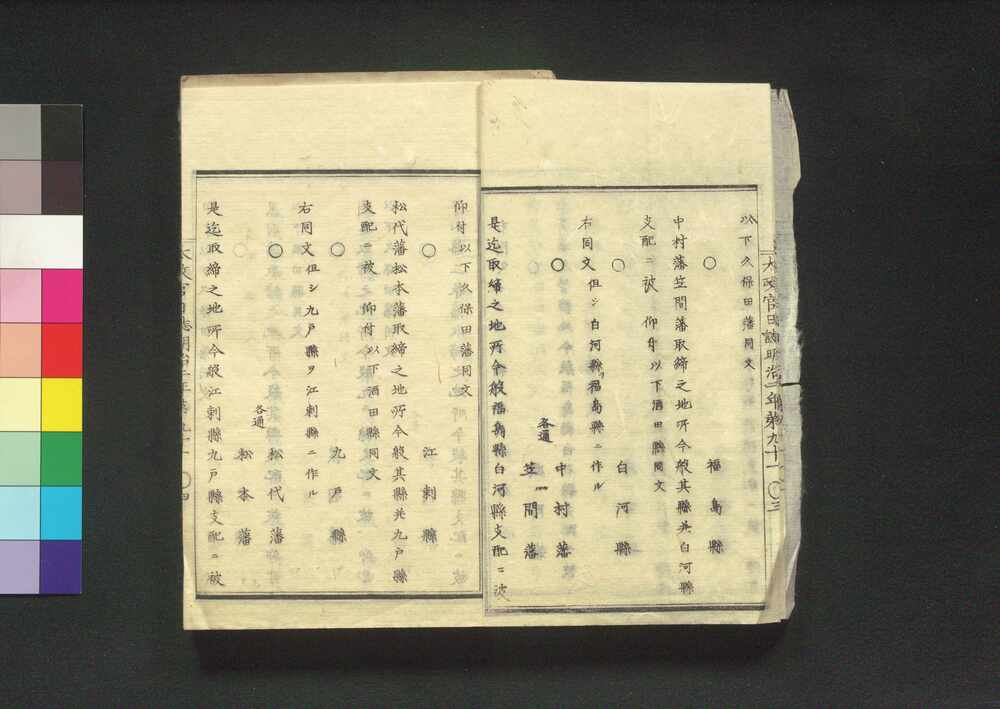 太政官日誌明治二年第九十一 〇三
以下久保田藩同文
〇 福島縣
中村藩笠間藩取締之地所今般其縣共白河縣
支配ニ被 仰付以下酒田縣同文
〇 白河縣
右同文但シ白河縣福島縣ニ作ル
〇 各通 中村藩
笠間藩
是迄取締之地所今般福島縣白河縣支配ニ被
仰付以下久保田藩同文
〇 江刺縣
松代藩松本藩取締之地所今般其縣共九戸縣
支配ニ被 仰付以下酒田縣同文
〇 九戸縣
右同文但シ九戸縣ヲ江刺縣ニ作ル
〇 各通 松代藩
松本藩
是迄取締之地所今般江刺縣九戸縣支配ニ被
太政官日誌明治二年第九十一 〇四